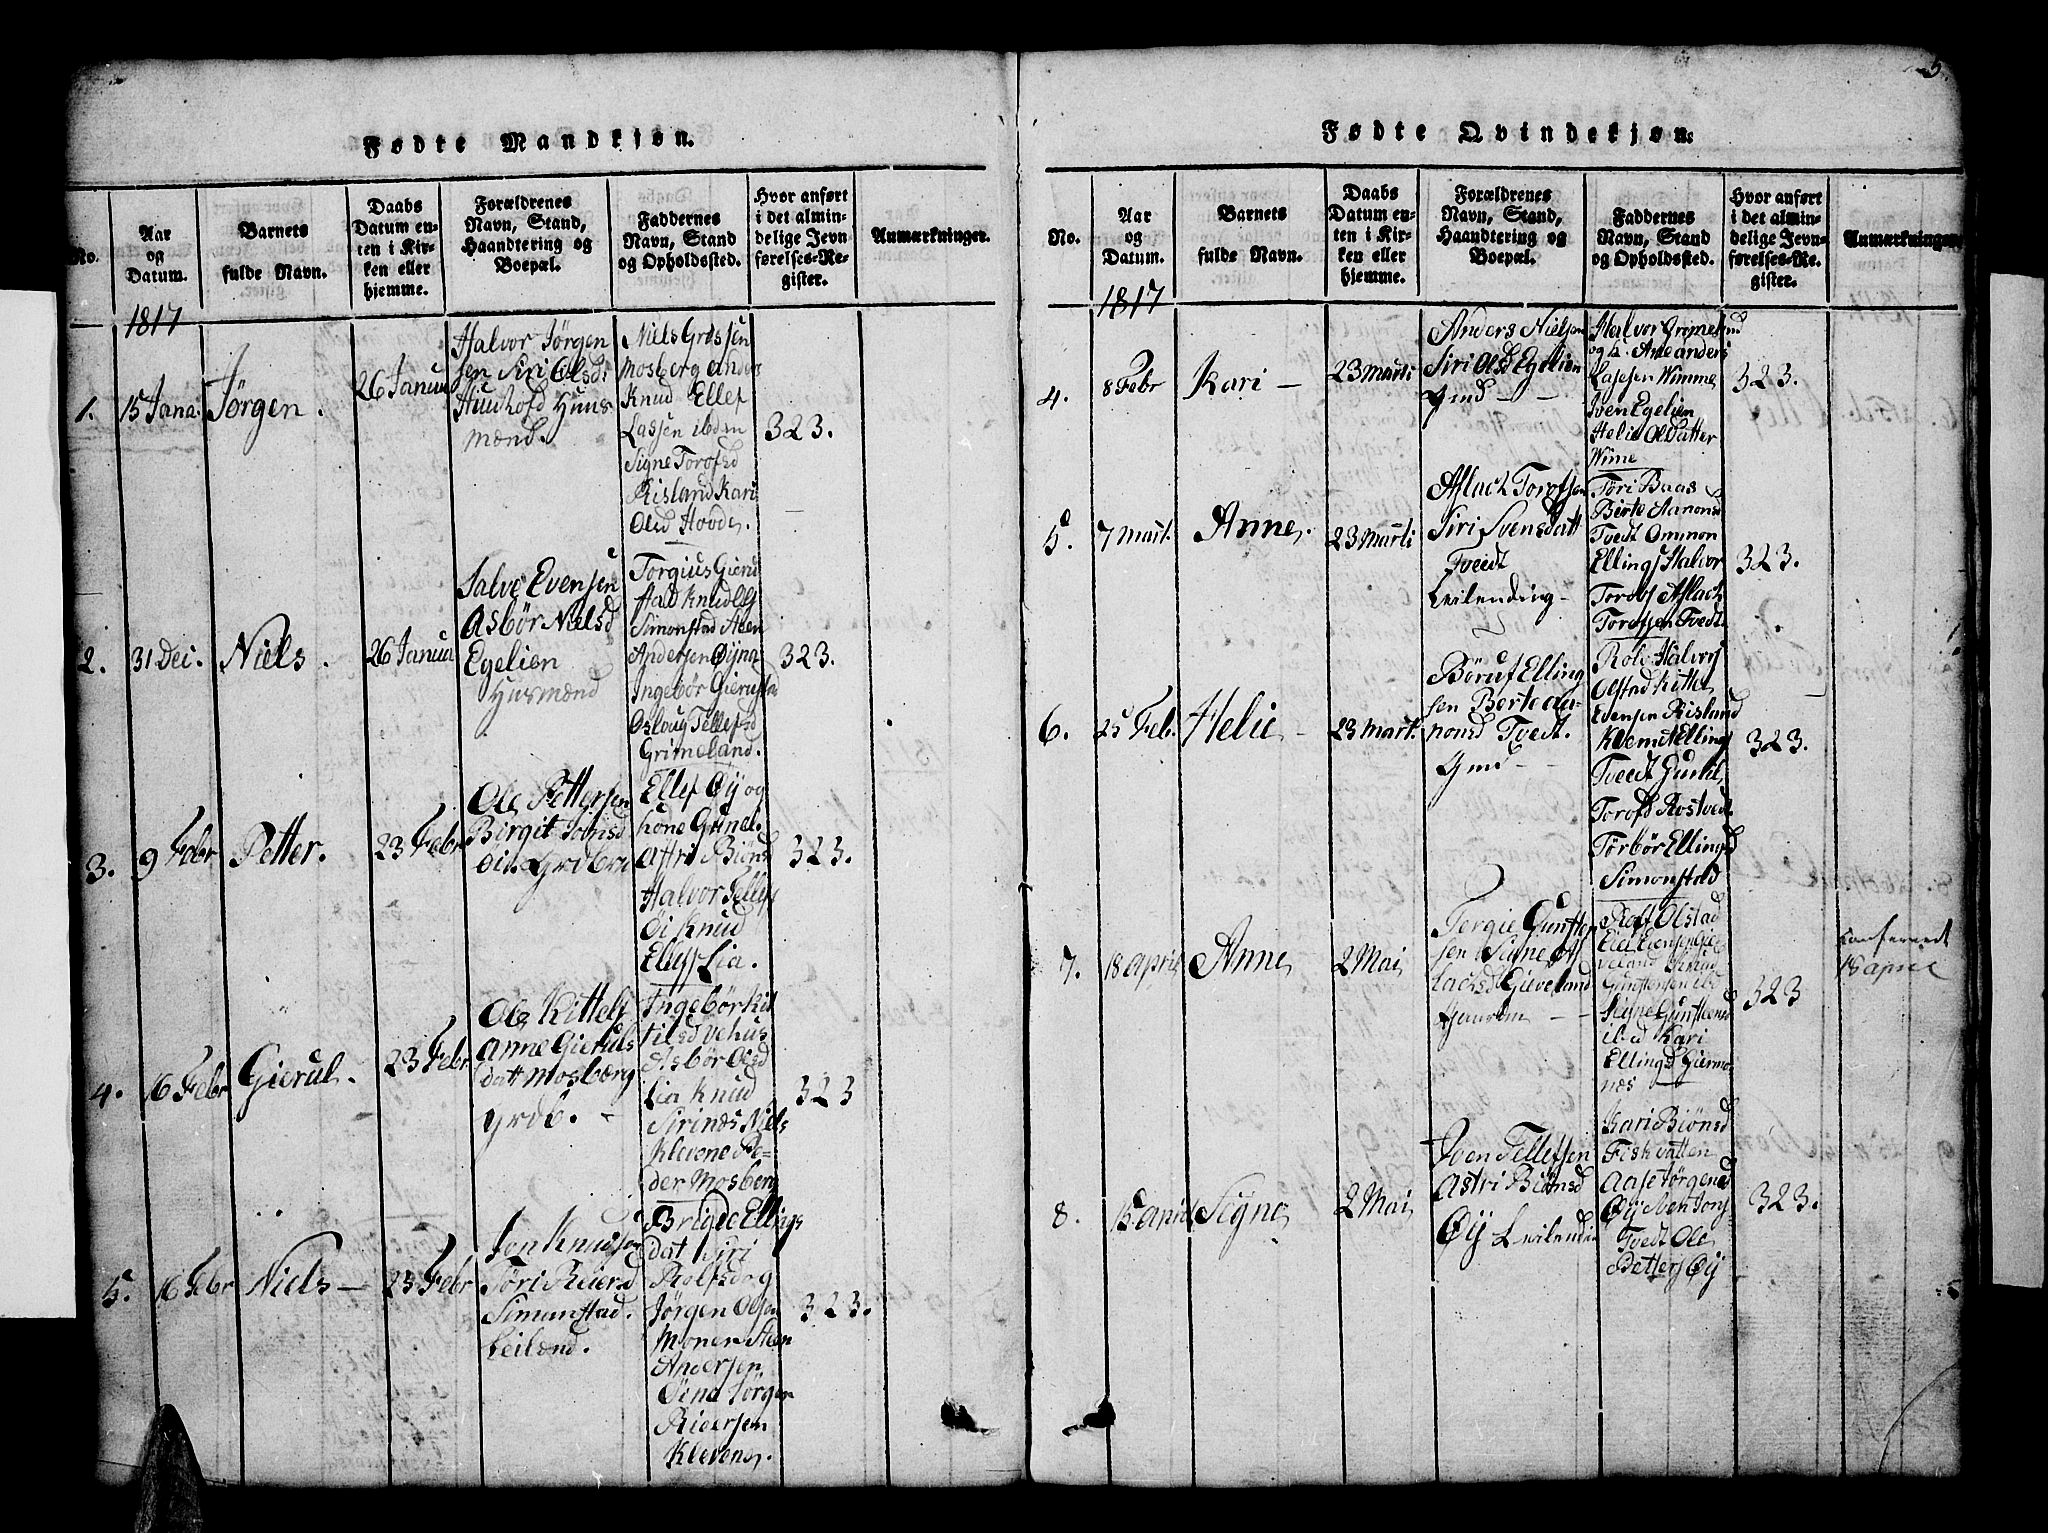 5
Fødte Mandkjøn.
No.
Aar
og
Datum.
Barnets
fulde Navn.
Daabs
Datum en-
ten i Kir-
ken eller
hjemme.
Forældrenes
Navn, Stand,
Haandtering og
Boepæl.
Faddernes
Navn, Stand
og Opholdssted.
Hvor anført
i det almin-
delige Jevn
førelses-Re-
gister.
Anmærkninger.
1817
1.
15 Jana.
Jørgen.
26 Janua
Halvor Jørgen
sen Siri Olsd:
Huuus
mænd.
Niels Grossen
Mosberg anders
Knud Ellef
Lassen ibdem
Signe Torofsd
Risland Kari
Olsd Hovde.
323.
2.
31 Dec.
Niels.
26 Janua
Salve Evensen
Asbör Nielsd
Egelien
Husmænd
Torgius Gierud
stad Knud Ols
Simonstad Aven
Andersen Øyna
Ingebör Gierustad
Oslaug Tellefsd
Grimeland.
323.
3.
9 Febr
Petter.
23 Febr
Ole Pettersen
Birgit Joensd
Øi. Grdbru
Ellef Øij og
kone Grinel.
Astri Biöns
Halvor Tellefs
Öi Knud
Ellefs Lia.
323.
4.
16 Febr
Gierul.
23 Febr
Ole Kittels
Anne Gieruls
datt Mosberg
Grdb.
Ingebör Kit
tilsd Vehus
Asbör Olsd
Lia Knud
Sirinæs Niels
Klevene Pe-
der Mosberg
323
5.
16 Febr
Niels —
23 Febr
Jon Knudsen
Töri Reiersd
Simonstad.
Leilænd.
Brigde Ellings
dat Siri
Rolfsd og
Jørgen Olsen
Moner Aven
Andersen
Øena Jörgen
Reiersen
Klevene.
323.
Fødte Qvindekjøn.
No.
Aar
og
Datum.
Barnets
fulde Navn.
Daabs
Datum en-
ten i Kir-
ken eller
hjemme.
Forældrenes
Navn, Stand,
Haandtering og
Boepæl.
Faddernes
Navn, Stand
og Opholdssted.
Hvor anført
i det almin-
delige Jevn-
førelses-Re-
gister.
Anmærkninger.
1817
4.
8 Febr
Kari —
23 Marti
Anders Nielsen
Siri Olsd Egelien
Hmd — —
Halvor Grimelund
og k. Ane anders
Lassen Wimme
Iven Egelien
Helie Oldatter
Wime
323.
5.
7 Mart.
Anne.
23 Marti
Aslach Torofsen
Siri Svensdatt
Tvedt
Leilending —
Töri Baas
Berte Aanonsd
Tvedt Ommon
Ellings Halvor
Torofs Aslach
Torofsen Tvedt.
323.
6.
25 Feb.
Helie —
23 Mart.
Böruf Elling
sen Berte Aa-
nonsd Tvedt.
Hmd —
Rolv Halvors
Olstad Kittel
Evensen Risland
Klemet Ellings
Tvedt Gunil
Torofsd Rostvedt
Törbör Ellingsd
Simonstad
323.
7.
18 April
Anne
2 Mai
Tergie Gunsten
sen Signe As
lachsd Gieveland
— —
Rolf Olstad
Eilef Evensen Gie
veland
Gunstensen ibd
Signe Gunstensd
ibid Kari
Ellingsd Giermo
næs
323
Confermert
18 April
8.
15 April
Signe
2 Mai
Iven Tellefsen
Astri Biönsd
Øij Leilendin
Kari Biönsd
Fiskvatten
Aase Jörgensd
Øij Aven Jons
Tvedt Ole
Petters Øij
323.